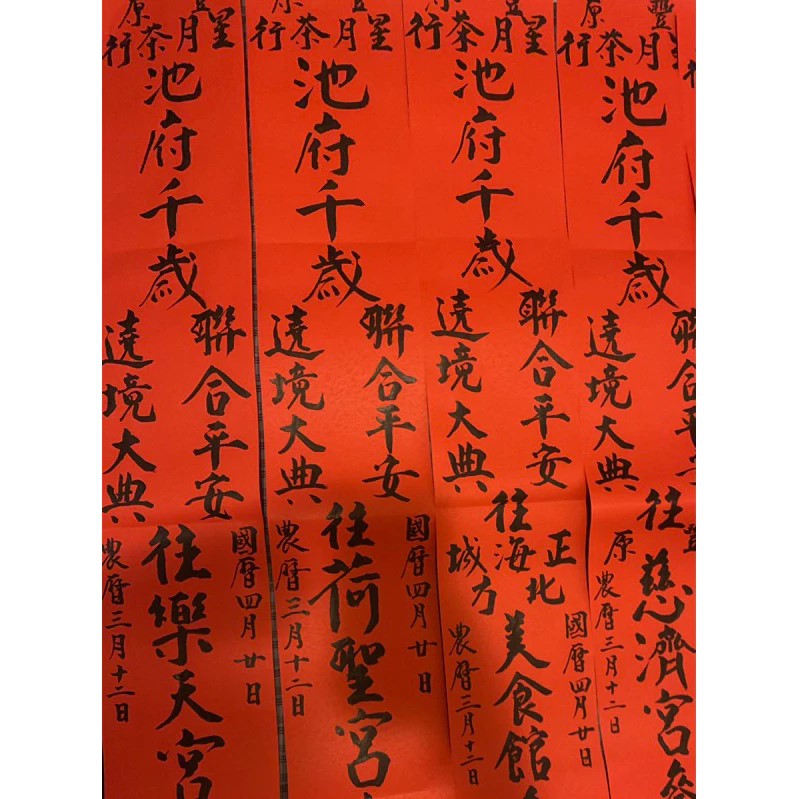 豐原
星月茶行
池府千歲
聯合平安
遶境大典
國曆四月廿日
往樂天宮
農曆三月十二日
豐原
星月茶行
池府千歲
聯合平安
遶境大典
國曆四月廿日
往荷聖宮
農曆三月十二日
星月茶行
池府千歲
聯合平安
遶境大典
往
正海城
北方
美食館
國曆四月廿日
農曆三月十二日
豐原
星月茶行
池府千歲
聯合平安
遶境大典
豐原
往慈濟宮參
農曆三月十二日